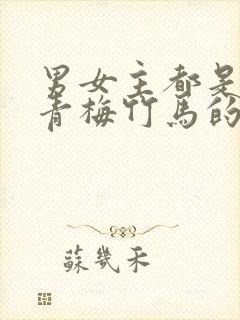 男女主都是
青梅竹馬的
蘇幾禾